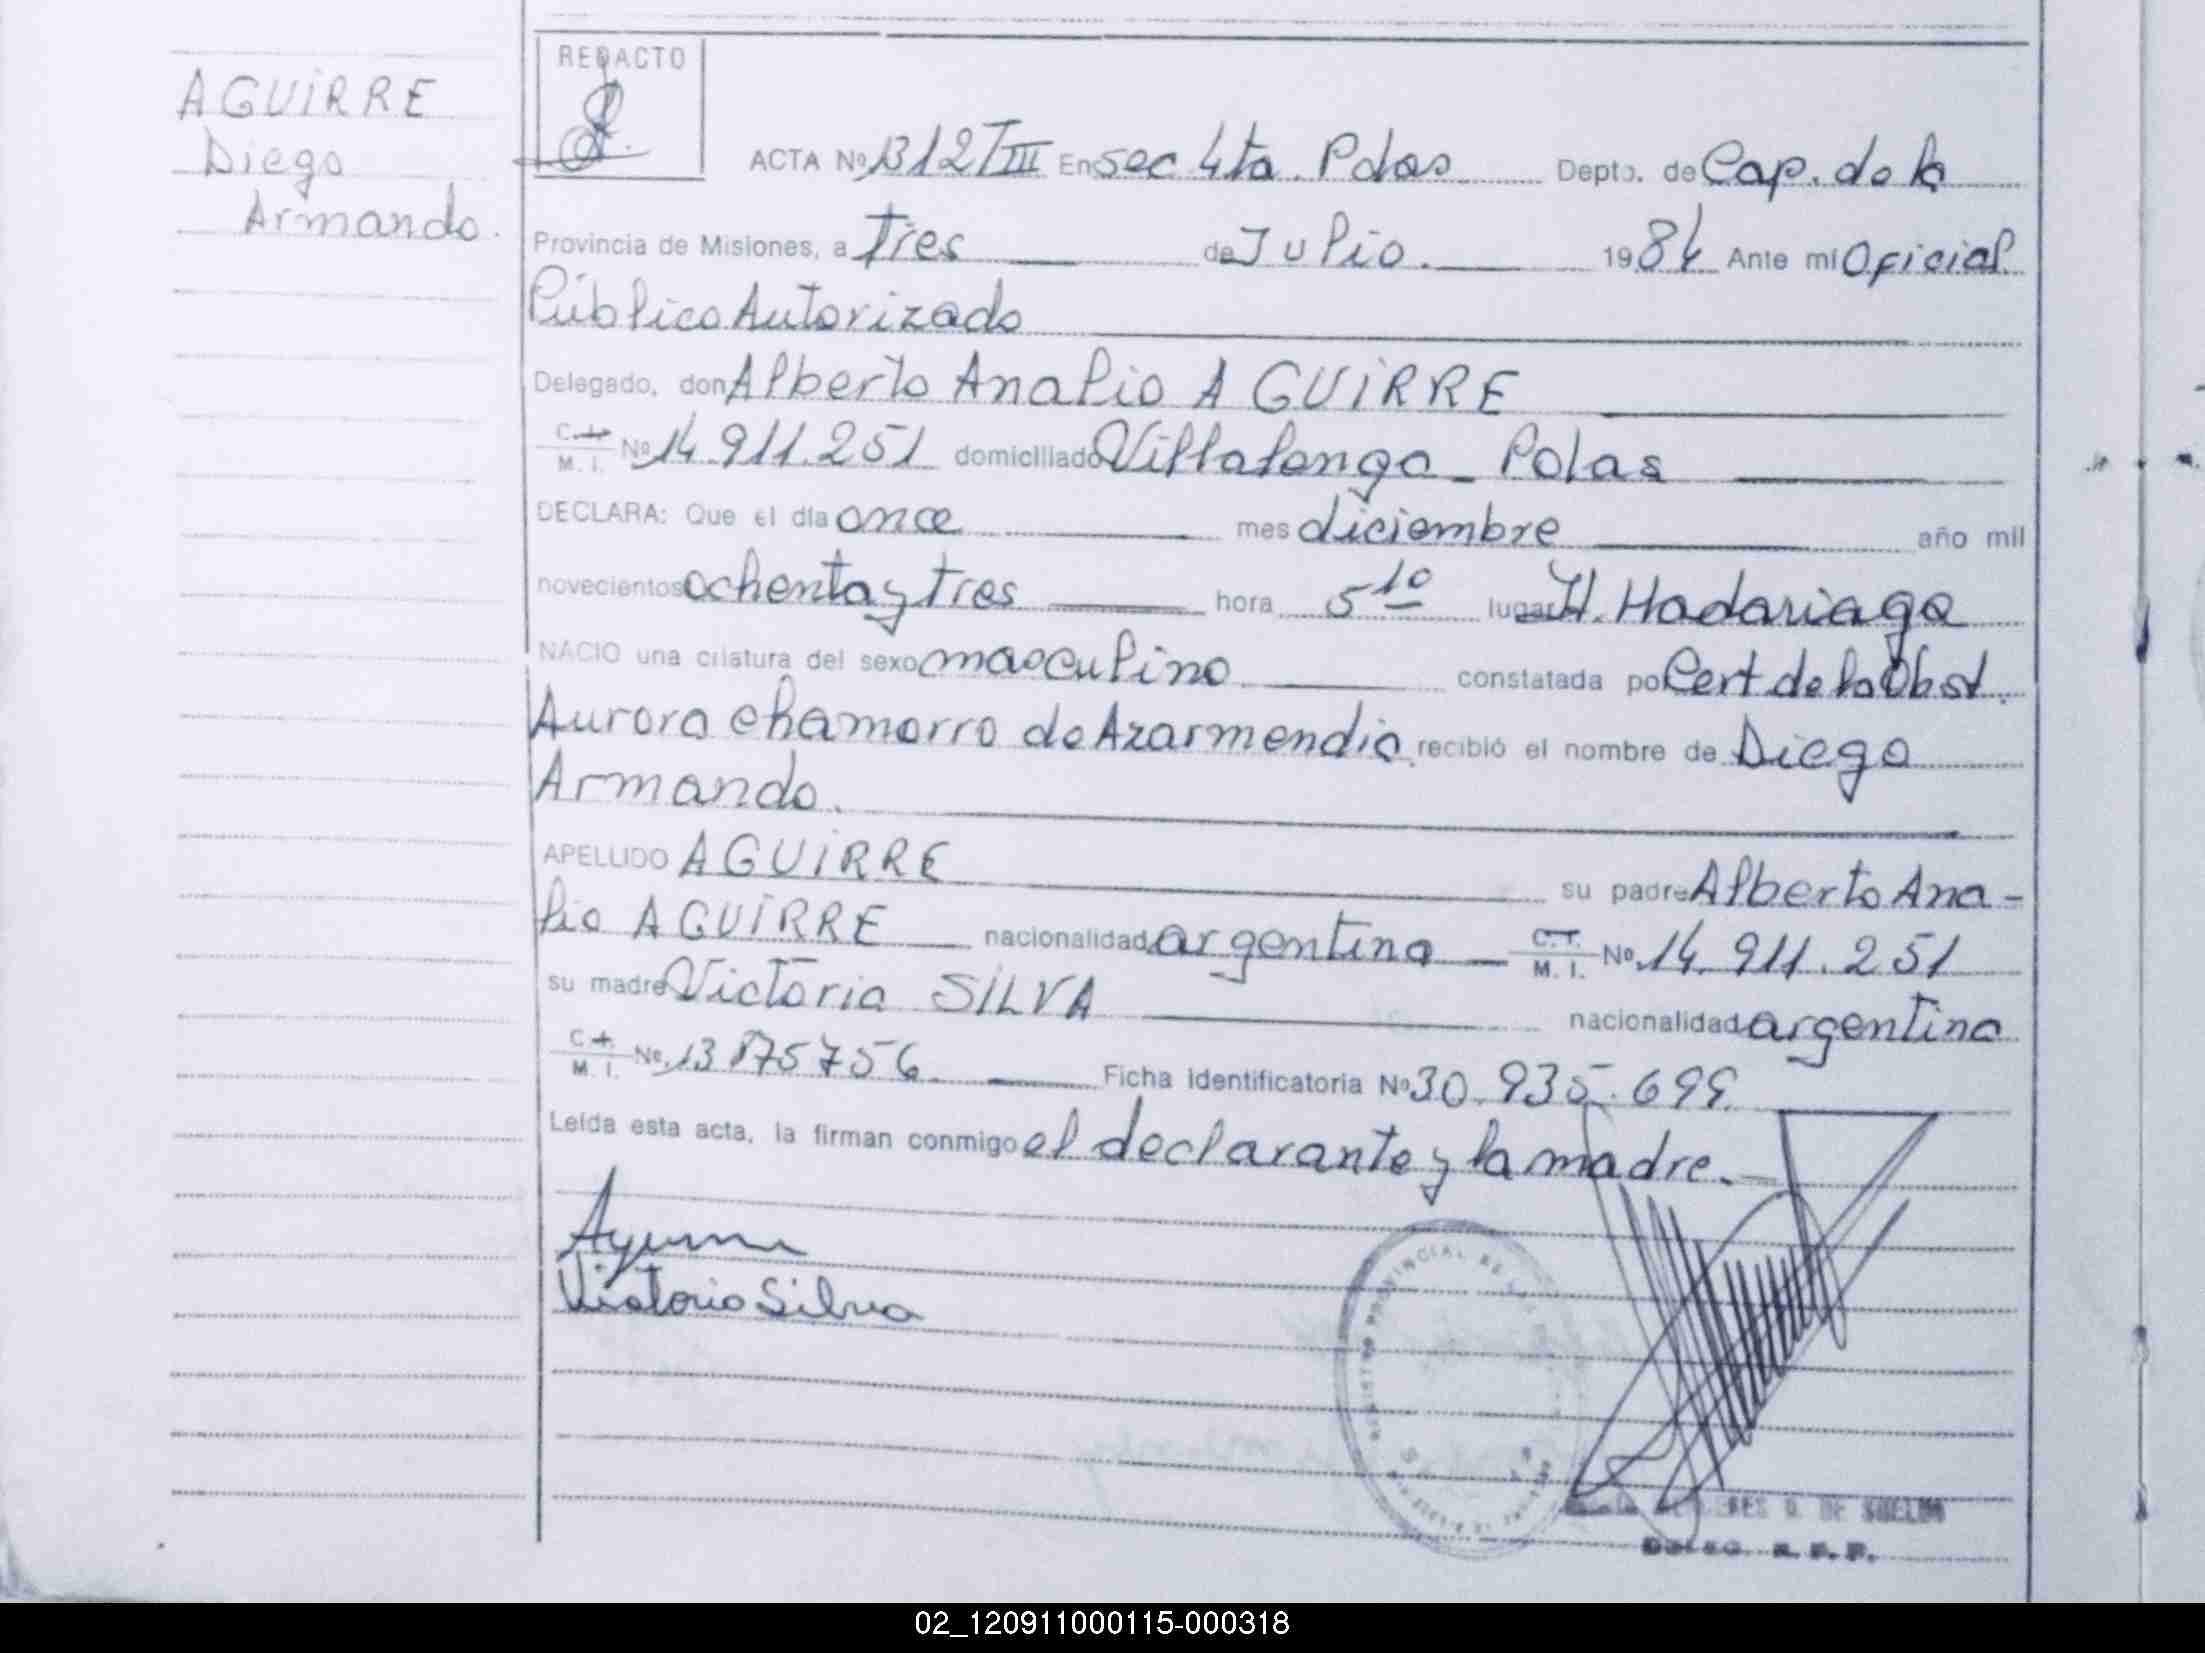 AGUIRRE
Diego
Armando.
REDACTO
ACTA Nº 1312 T III En sec 4ta. Pdas Depto. de Cap. de la
Provincia de Misiones, a Tres de Julio. 1984 Ante mí Oficial
Público Autorizado
Delegado, don Alberto Analio AGUIRRE
C.I. M.I. Nº 14.911.251 domiciliado Villalonga - Pdas
DECLARA: Que el día once mes diciembre año mil
novecientos ochenta y tres hora 5 10 lugar H. Madariaga
NACIO una criatura del sexo masculino constatada por Cert de la Obst.
Aurora Chamorro de Azarmendia recibió el nombre de Diego
Armando.
APELLIDO AGUIRRE su padre Alberto Ana-
lio AGUIRRE nacionalidad argentina C.I. M.I. Nº 14.911.251
su madre Victoria SILVA nacionalidad argentina
C.I. M.I. Nº 13 175756 Ficha Identificatoria Nº 30.935.699
Leída esta acta, la firman conmigo el declarante y la madre.-
Victoria Silva
REGISTRO PROVINCIAL DE LAS
DE
02_120911000115-000318